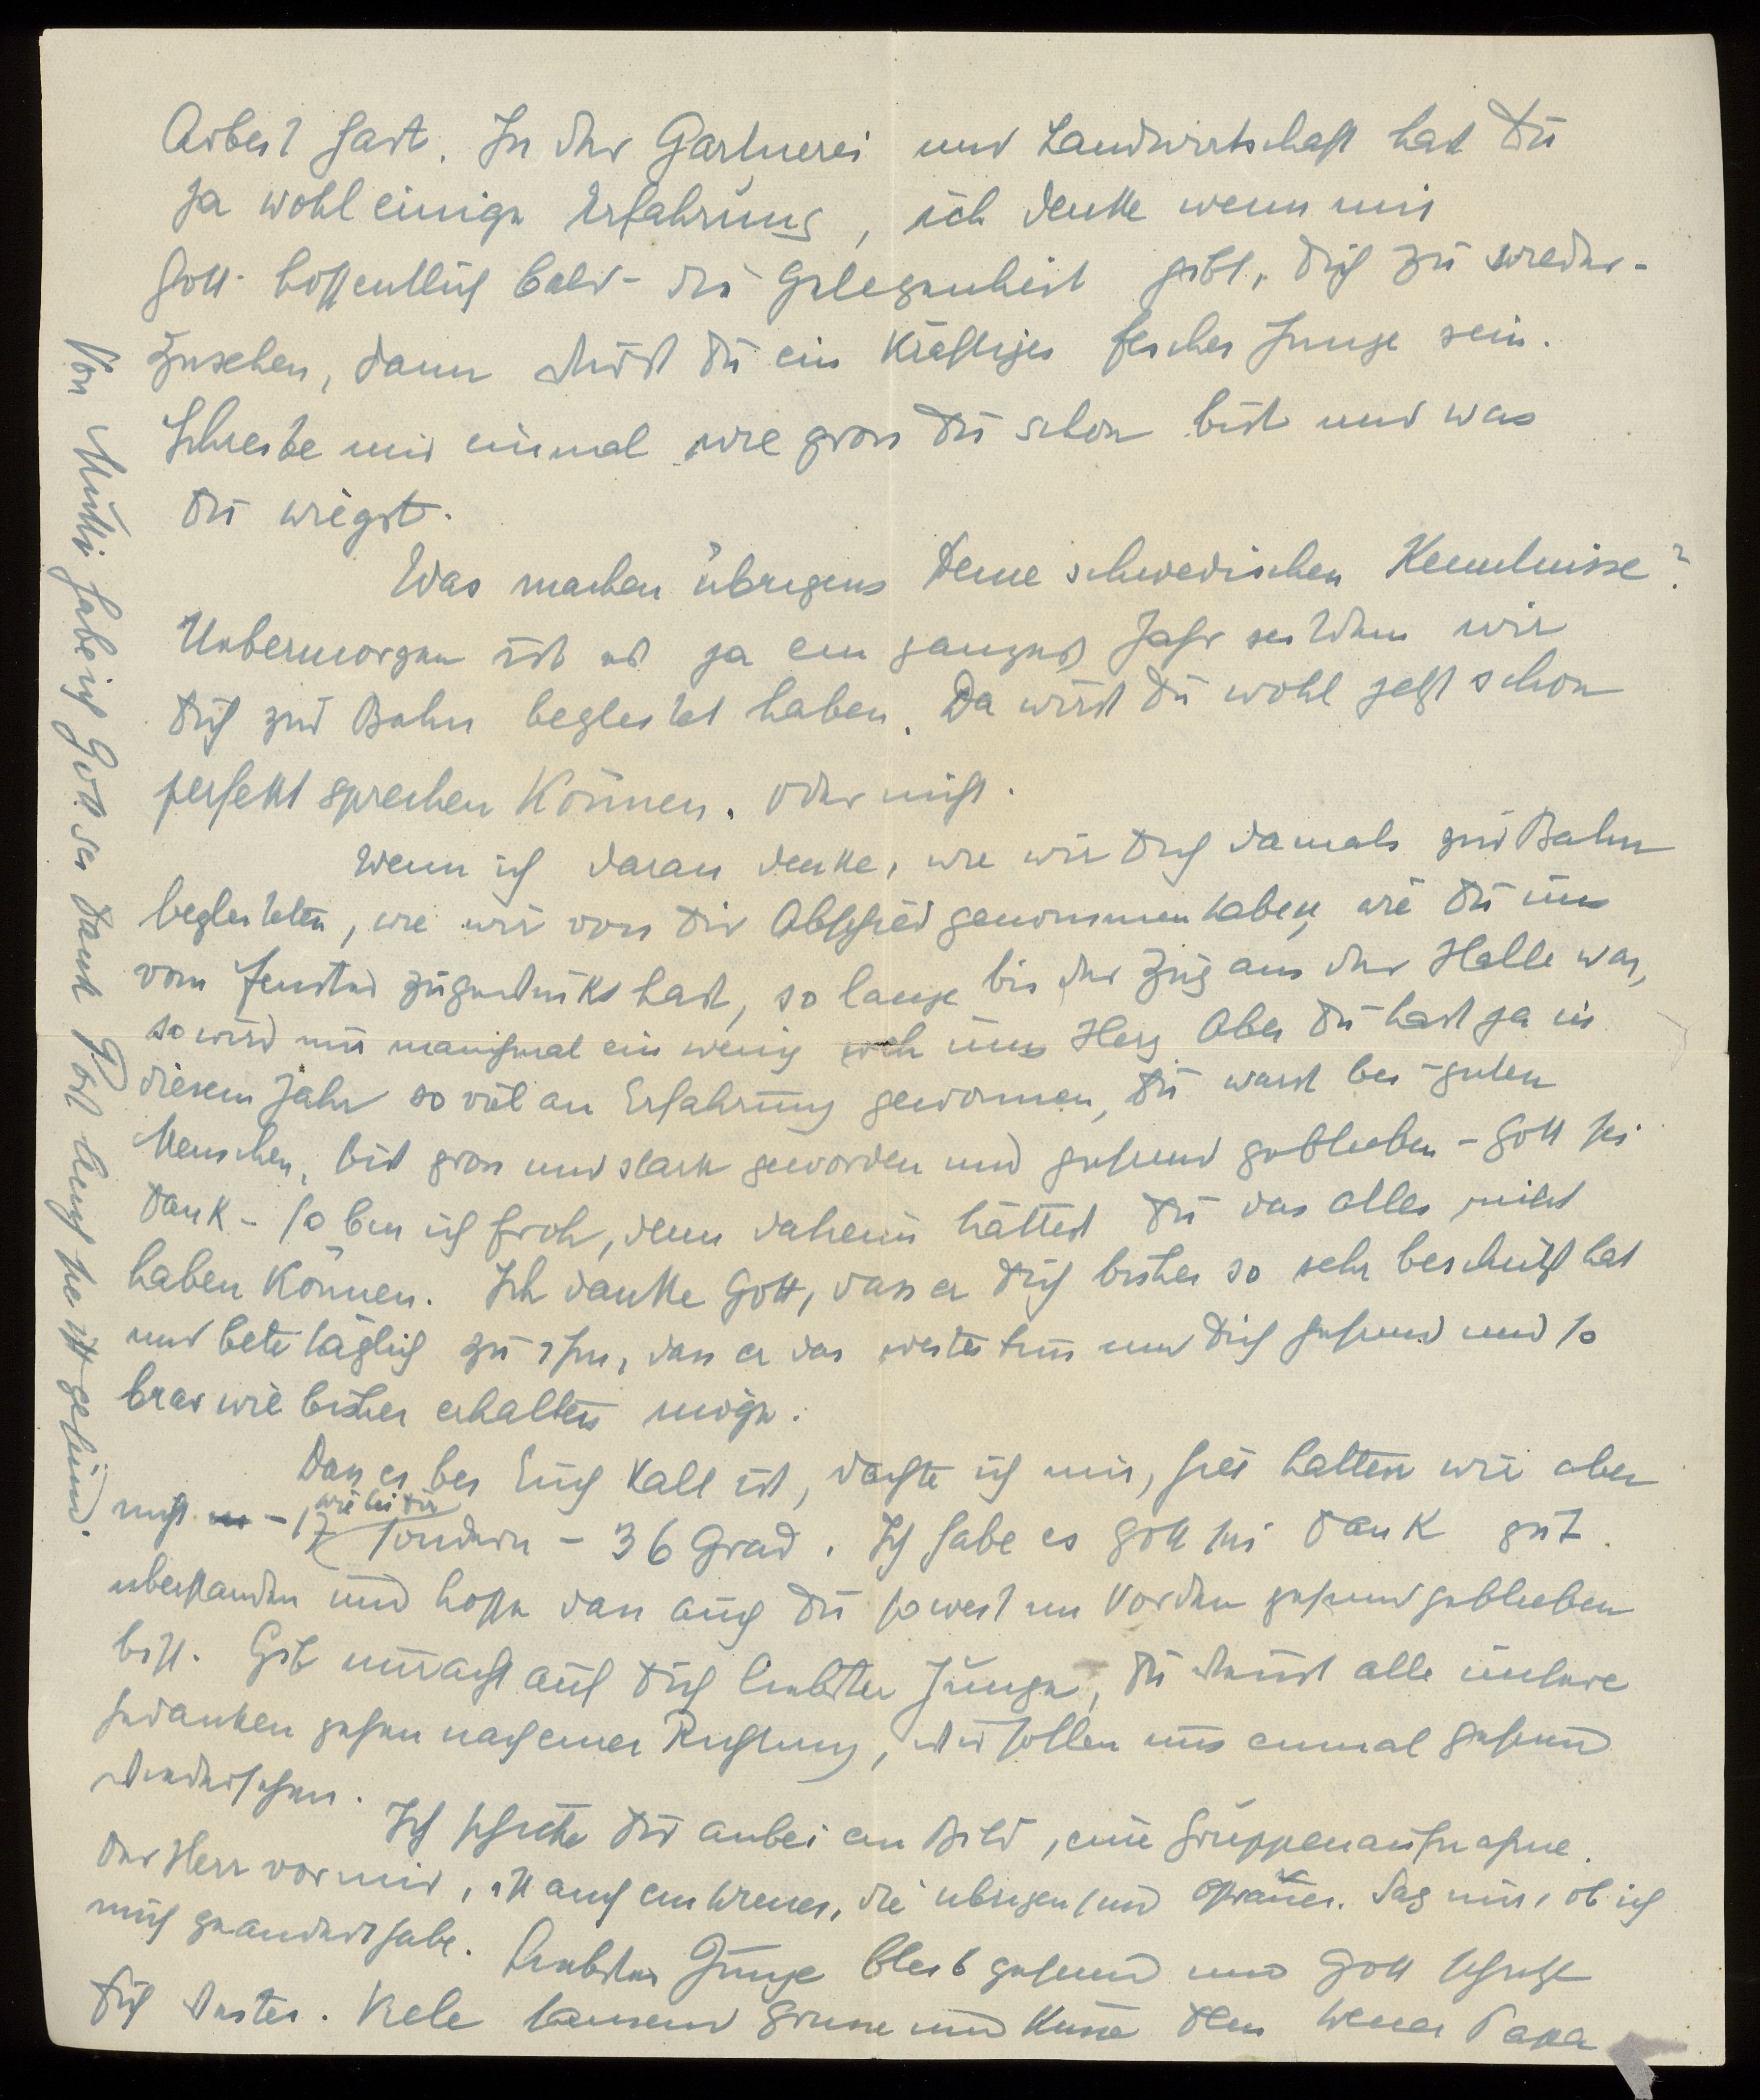 Arbeit hast. In der Gartnerei und Landwirtschaft hast Du
ja wohl einige Erfahrung, ich denke wenn mir
Gott - hoffentlich bald - die Gelegenheit gibt, Dich zu wieder-
zusehen, dann wirst Du ein kräftiger fescher Junge sein.
Schreibe mir einmal wie gross Du schon bist und was
Du wiegst.
Was machen übrigens Deine schwedischen Kenntnisse?
Uebermorgen ist es ja ein ganzes Jahr seitdem wir
Dich zur Bahn begleitet haben. Da wirst Du wohl jetzt schon
perfekt sprechen können. Oder nicht.
Wenn ich daran denke, wie wir Dich damals zur Bahn
begleiteten, wie wir von Dir Abschied genommen haben, wie Du uns
vom Fenster zugewinkt hast, so lange bis der Zug aus der Halle war,
so wird mir manchmal ein wenig weh ums Herz. Aber Du hast ja in
diesem Jahr so viel an Erfahrung gewonnen, Du warst bei guten
Menschen, bist gross und stark geworden und gesund geblieben - Gott sei
Dank - so bin ich froh, denn daheim hättest Du das alles nicht
haben können. Ich danke Gott, dass er Dich bisher so sehr beschützt hat
und bete täglich zu ihm, dass er das weiter tun und Dich gesund und so
brav wie bisher erhalten möge.
Dass es bei Euch kalt ist, dachte ich mir, hier hatten wir aber
nicht - 17 wie bei Dir sondern - 36 Grad. Ich habe es Gott sei Dank gut
uberstanden und hoffe dass auch Du soweit im Norden gesund geblieben
bist. Gib nur acht auf Dich liebster Junge, Du weisst alle unsere
Gedanken gehen nach einer Richtung, wir sollen uns einmal gesund
wiedersehen.
Ich schicke Dir anbei ein Bild, eine Gruppenaufnahme.
Der Herr vor mir, ist auch ein Wiener, die ubrigen sind Ostrauer. Sag mir, ob ich
mich geandert habe.
Liebster Junge bleib gesund und Gott schutze
Dich weiter. Viele tausend Grusse und Kusse Dein treuer Papa
Von Mutti habe ich Gott sei Dank Post auch sie ist gesund.